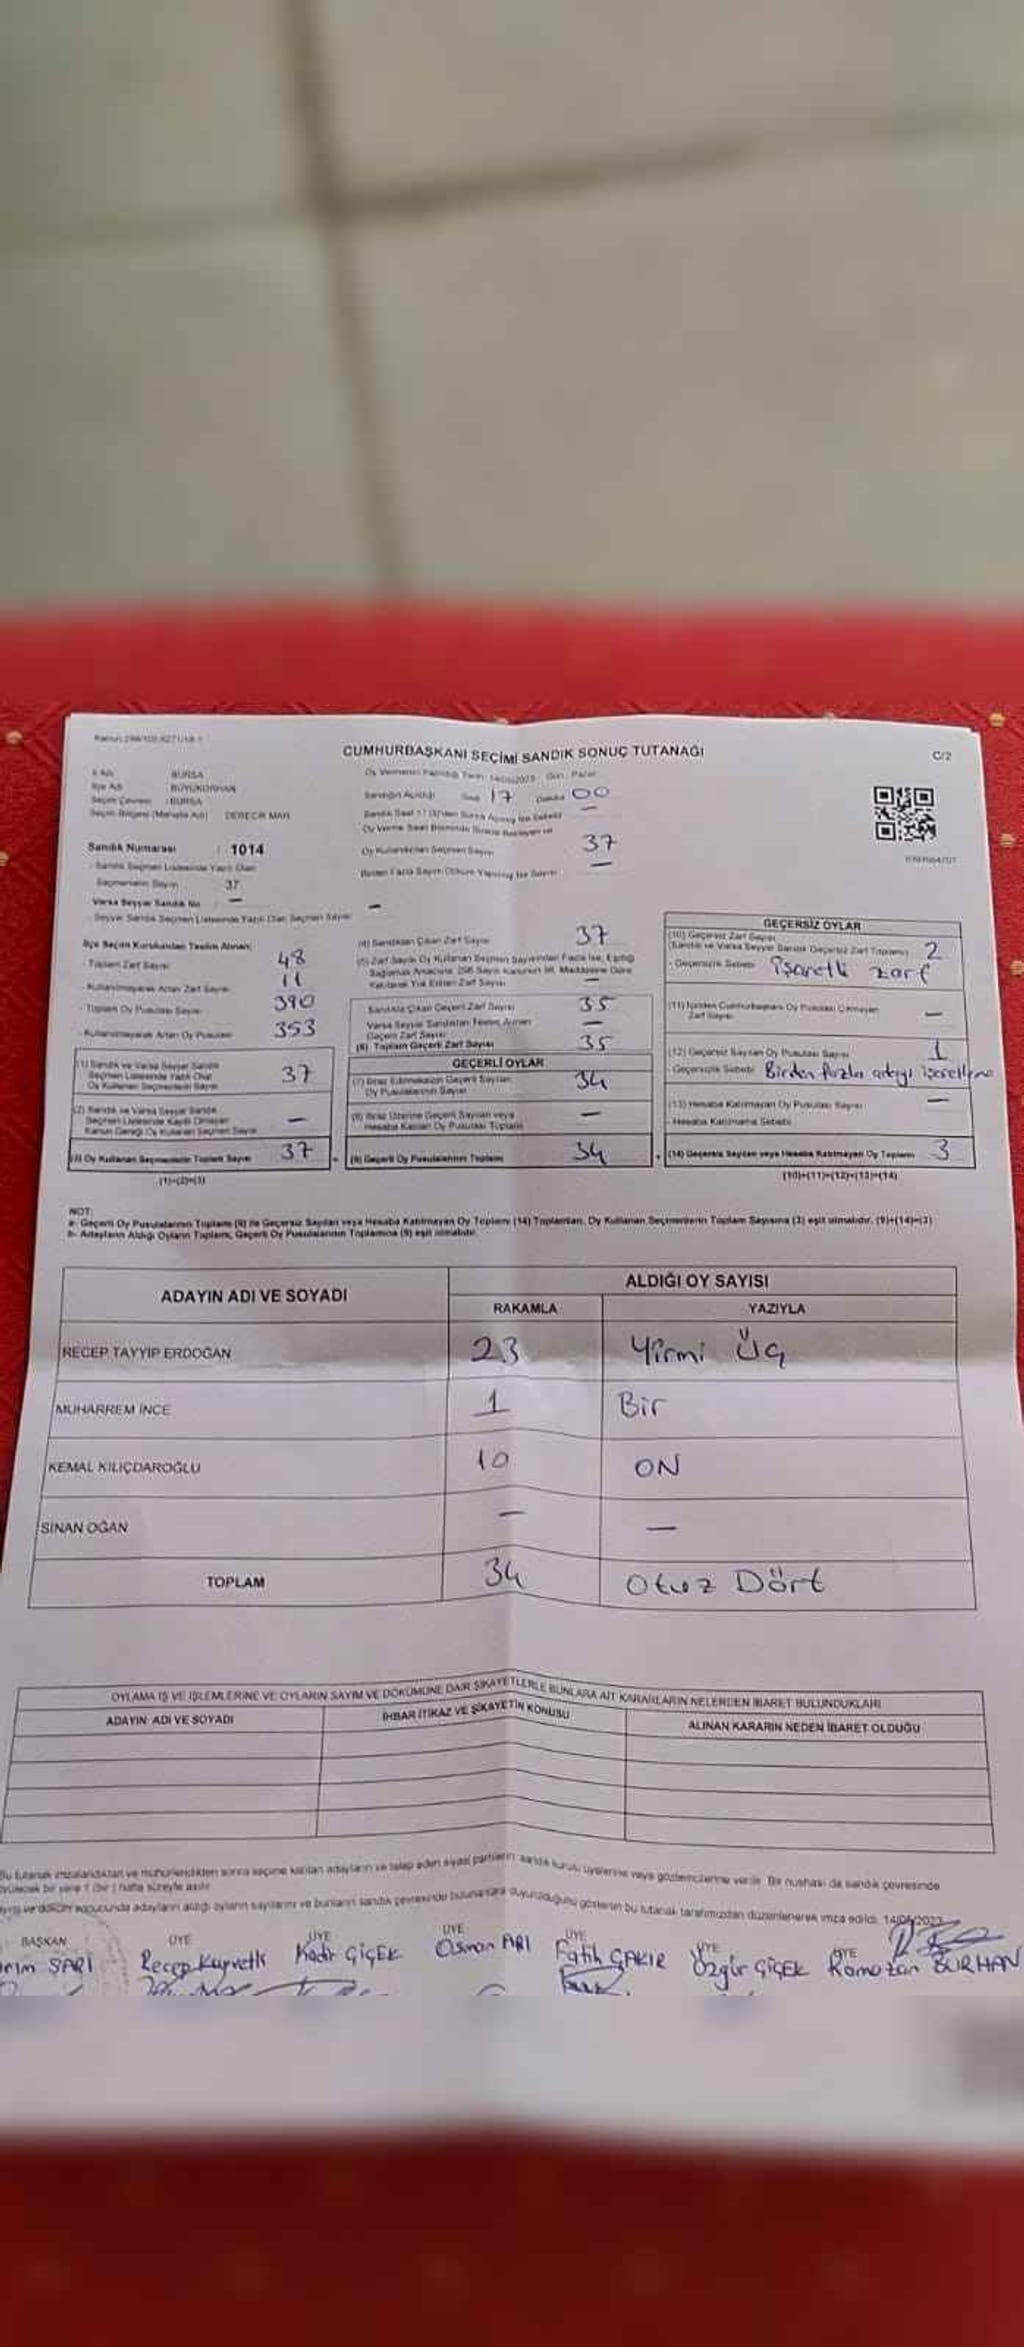 CUMHURBAŞKANI SEÇİMİ SANDIK SONUÇ TUTANAĞI
C/2
İl Adı : BURSA
İlçe Adı : BÜYÜKORHAN
Seçim Çevresi : BURSA
Seçim Bölgesi (Mahalle Adı) : DERECİK MAH.
Sandık Numarası : 1014
Sandık Seçmen Listesinde Yazılı Olan
Seçmenlerin Sayısı 37
Varsa Seyyar Sandık No —
Seyyar Sandık Seçmen Listesinde Yazılı Olan Seçmen Sayısı —
Oy Vermenin Yapıldığı Tarih: 14/05/2023 Gün: Pazar
Sandığın Açıldığı Saat 17 Dakika 00
Oy Kullandırılan Seçmen Sayısı 37
İlçe Seçim Kurulundan Teslim Alınan;
- Toplam Zarf Sayısı 48
- Kullanılmayarak Artan Zarf Sayısı 11
- Toplam Oy Pusulası Sayısı 390
- Kullanılmayarak Artan Oy Pusulası 353
(1) Sandık ve Varsa Seyyar Sandık
Seçmen Listesinde Yazılı Olup
Oy Kullanan Seçmenlerin Sayısı 37
(2) Sandık ve Varsa Seyyar Sandık
Seçmen Listesinde Kayıtlı Olmayan
Kanun Gereği Oy Kullanan Seçmen Sayısı —
(3) Oy Kullanan Seçmenlerin Toplam Sayısı 37
(1)+(2)=(3)
(4) Sandıktan Çıkan Zarf Sayısı 37
Sandıkta Çıkan Geçerli Zarf Sayısı 35
Varsa Seyyar Sandıktan Teslim Alınan
Geçerli Zarf Sayısı —
(6) Toplam Geçerli Zarf Sayısı 35
GEÇERLİ OYLAR
(7) İtiraz Edilmeksizin Geçerli Sayılan
Oy Pusulalarının Sayısı 34
(8) İtiraz Üzerine Geçerli Sayılan veya
Hesaba Katılan Oy Pusulası Toplamı —
(9) Geçerli Oy Pusulalarının Toplamı 34
GEÇERSİZ OYLAR
(10) Geçersiz Zarf Sayısı
(Sandık ve Varsa Seyyar Sandık Geçersiz Zarf Toplamı) 2
- Geçersizlik Sebebi: işaretli zarf
(11) İçinden Cumhurbaşkanı Oy Pusulası Çıkmayan
Zarf Sayısı —
(12) Geçersiz Sayılan Oy Pusulası Sayısı 1
Geçersizlik Sebebi: Birden fazla adayı işaretleme
(13) Hesaba Katılmayan Oy Pusulası Sayısı —
- Hesaba Katılmama Sebebi:
(14) Geçersiz Sayılan veya Hesaba Katılmayan Oy Toplamı 3
(10)+(11)+(12)+(13)=(14)
NOT:
a- Geçerli Oy Pusulalarının Toplamı (9) ile Geçersiz Sayılan veya Hesaba Katılmayan Oy Toplamı (14) Toplamları, Oy Kullanan Seçmenlerin Toplam Sayısına (3) eşit olmalıdır. (9)+(14)=(3)
b- Adayların Aldığı Oyların Toplamı, Geçerli Oy Pusulalarının Toplamına (9) eşit olmalıdır.
ADAYIN ADI VE SOYADI ALDIĞI OY SAYISI
RAKAMLA YAZIYLA
RECEP TAYYİP ERDOĞAN 23 Yirmi Üç
MUHARREM İNCE 1 Bir
KEMAL KILIÇDAROĞLU 10 ON
SİNAN OĞAN — —
TOPLAM 34 Otuz Dört
OYLAMA İŞ VE İŞLEMLERİNE VE OYLARIN SAYIM VE DÖKÜMÜNE DAİR ŞİKAYETLERLE BUNLARA AİT KARARLARIN NELERDEN İBARET BULUNDUKLARI
ADAYIN ADI VE SOYADI İHBAR İTİRAZ VE ŞİKAYETİN KONUSU ALINAN KARARIN NEDEN İBARET OLDUĞU
Bu tutanak imzalandıktan ve mühürlendikten sonra seçime katılan adayların ve talep eden siyasi partilerin sandık kurulu üyelerine veya gözlemcilerine verilir. Bir nüshası da sandık çevresinde
bir yere 1 (bir) hafta süreyle asılır.
sonucunda adayların aldığı oyların sayılarını ve bunların sandık çevresinde bulunanlara duyurulduğunu gösteren bu tutanak tarafımızdan düzenlenerek imza edildi. 14/05/2023
BAŞKAN ÜYE ÜYE ÜYE ÜYE ÜYE ÜYE
SARI Recep Kadir ÇİÇEK Osman ARI Fatih ÇAKIR Özgür ÇİÇEK Ramazan BURHAN